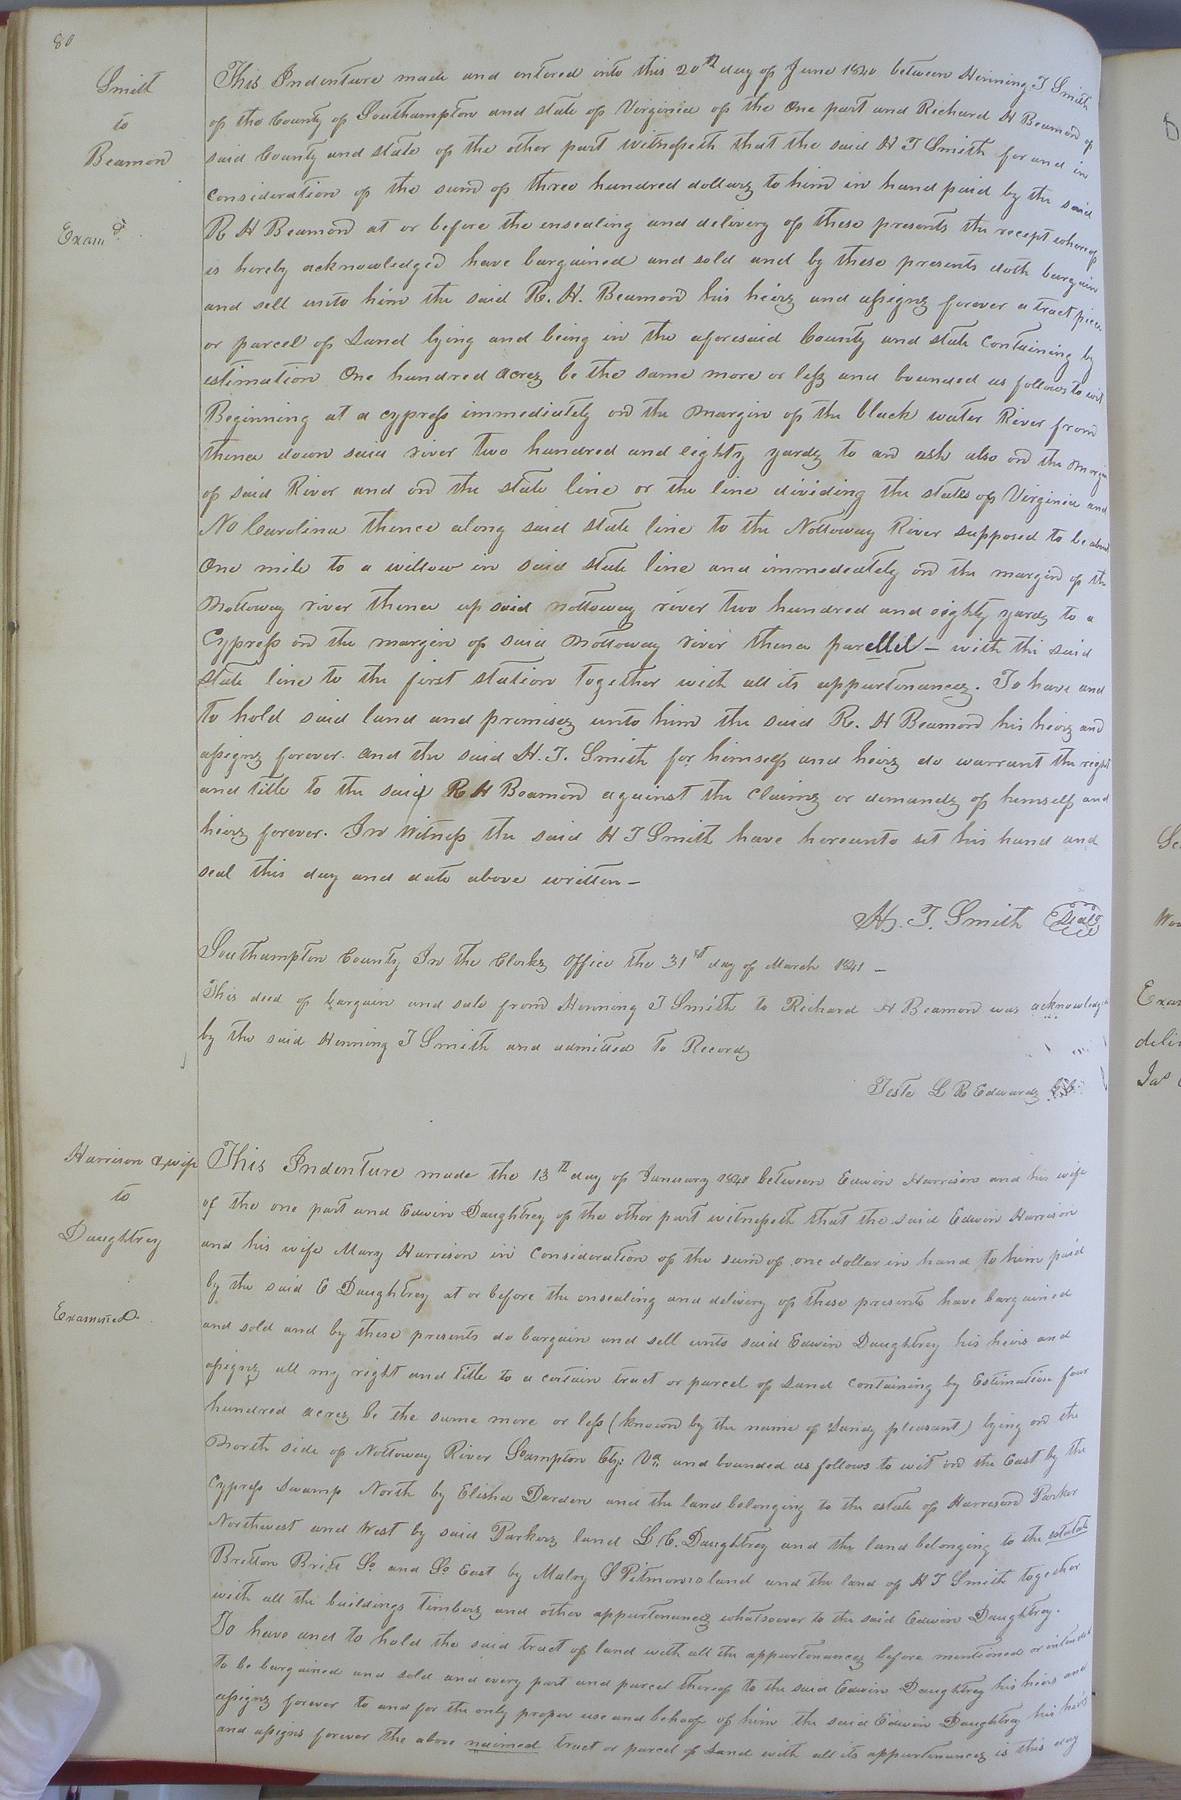 80
Smith
to
Beamon
Examd
This Indenture made and entered into this 20th day of June 1840 between Henning T Smith
of the County of Southampton and state of Virginia of the One part and Richard H Beamon of
said County and state of the other part witnesseth that the said H T Smith for and in
consideration of the sum of three hundred dollars to him in hand paid by the said
R H Beamon at or before the ensealing and delivery of these presents the recept whereof
is hereby acknowledged have bargained and sold and by these presents doth bargain
and sell unto him the said R. H. Beamon his heirs and assigns forever a tract piece
or parcel of Land lying and being in the aforesaid County and state Containing by
estimation One hundred Acres be the same more or less and bounded as follows to wit
Beginning at a cypress immediately on the margin of the black water River from
thence down said river two hundred and eighty yards to an ash also on the margin
of said River and on the state line or the line dividing the states of Virginia and
No Carolina thence along said state line to the Nottoway River supposed to be about
One mile to a willow in said state line and immediately on the margin of the
Nottoway river thence up said nottoway river two hundred and eighty yards to a
Cypress on the margin of said Nottoway river thence parellel – with the said
state line to the first station together with all its appurtenances. To have and
to hold said land and premises unto him the said R. H Beamon his heirs and
assigns forever. and the said H. T. Smith for himself and heirs do warrant the right
and title to the said R H Beamon against the Claims or demands of himself and
heirs forever. In Witness the said H T Smith have hereunto set his hand and
seal this day and date above written –
H. T. Smith Seal
Southampton County In the Clerks Office the 31st day of March 1841 –
This deed of bargain and sale from Henning T Smith to Richard H Beamon was acknowledged
by the said Henning T Smith and admitted to Record
Teste L R Edwards
Harrison & wife
to
Daughtrey
Examined
This Indenture made the 13th day of January 1840 between Edwin Harrison and his wife
of the one part and Edwin Daughtrey of the other part witnesseth that the said Edwin Harrison
and his wife Mary Harrison in Consideration of the sum of one dollar in hand to him paid
by the said E Daughtrey at or before the ensealing and delivery of these presents have bargained
and sold and by these presents do bargain and sell unto said Edwin Daughtrey his heirs and
assigns all my right and title to a certain tract or parcel of Land Containing by Estimation four
hundred acres be the same more or less (known by the name of pleasant) lying on the
North side of Nottoway River Shampton Cty: Va and bounded as follows to wit on the East by the
Cypress Swamp North by Elisha Darden and the land belonging to the estate of Harrison Parker
Northwest and West by said Parkers land L. C. Daughtrey and the land belonging to the estate
Britton Britt So. and So East by S Pitmons land and the land of H T Smith together
with all the buildings timbers and other appurtenances whatsoever to the said Edwin Daughtrey.
To have and to hold the said tract of land with all the appurtenances before mentioned or intended
to be bargained and sold and every part and parcel thereof to the said Edwin Daughtrey his heirs and
assigns forever to and for the only proper use and behoof of him the said Edwin Daughtrey his heirs
and assigns forever the above naimed tract or parcel of Land with all its appurtenances is this day